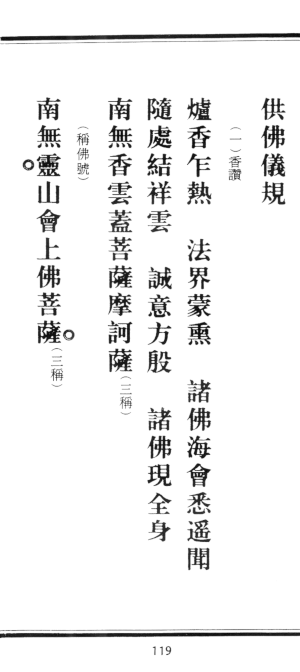 供佛儀規
（一）香讚
爐香乍熱　法界蒙熏　諸佛海會悉遥聞
隨處結祥雲　誠意方殷　諸佛現全身
南無香雲蓋菩薩摩訶薩（三稱）
（稱佛號）
南無靈山會上佛菩薩（三稱）
119